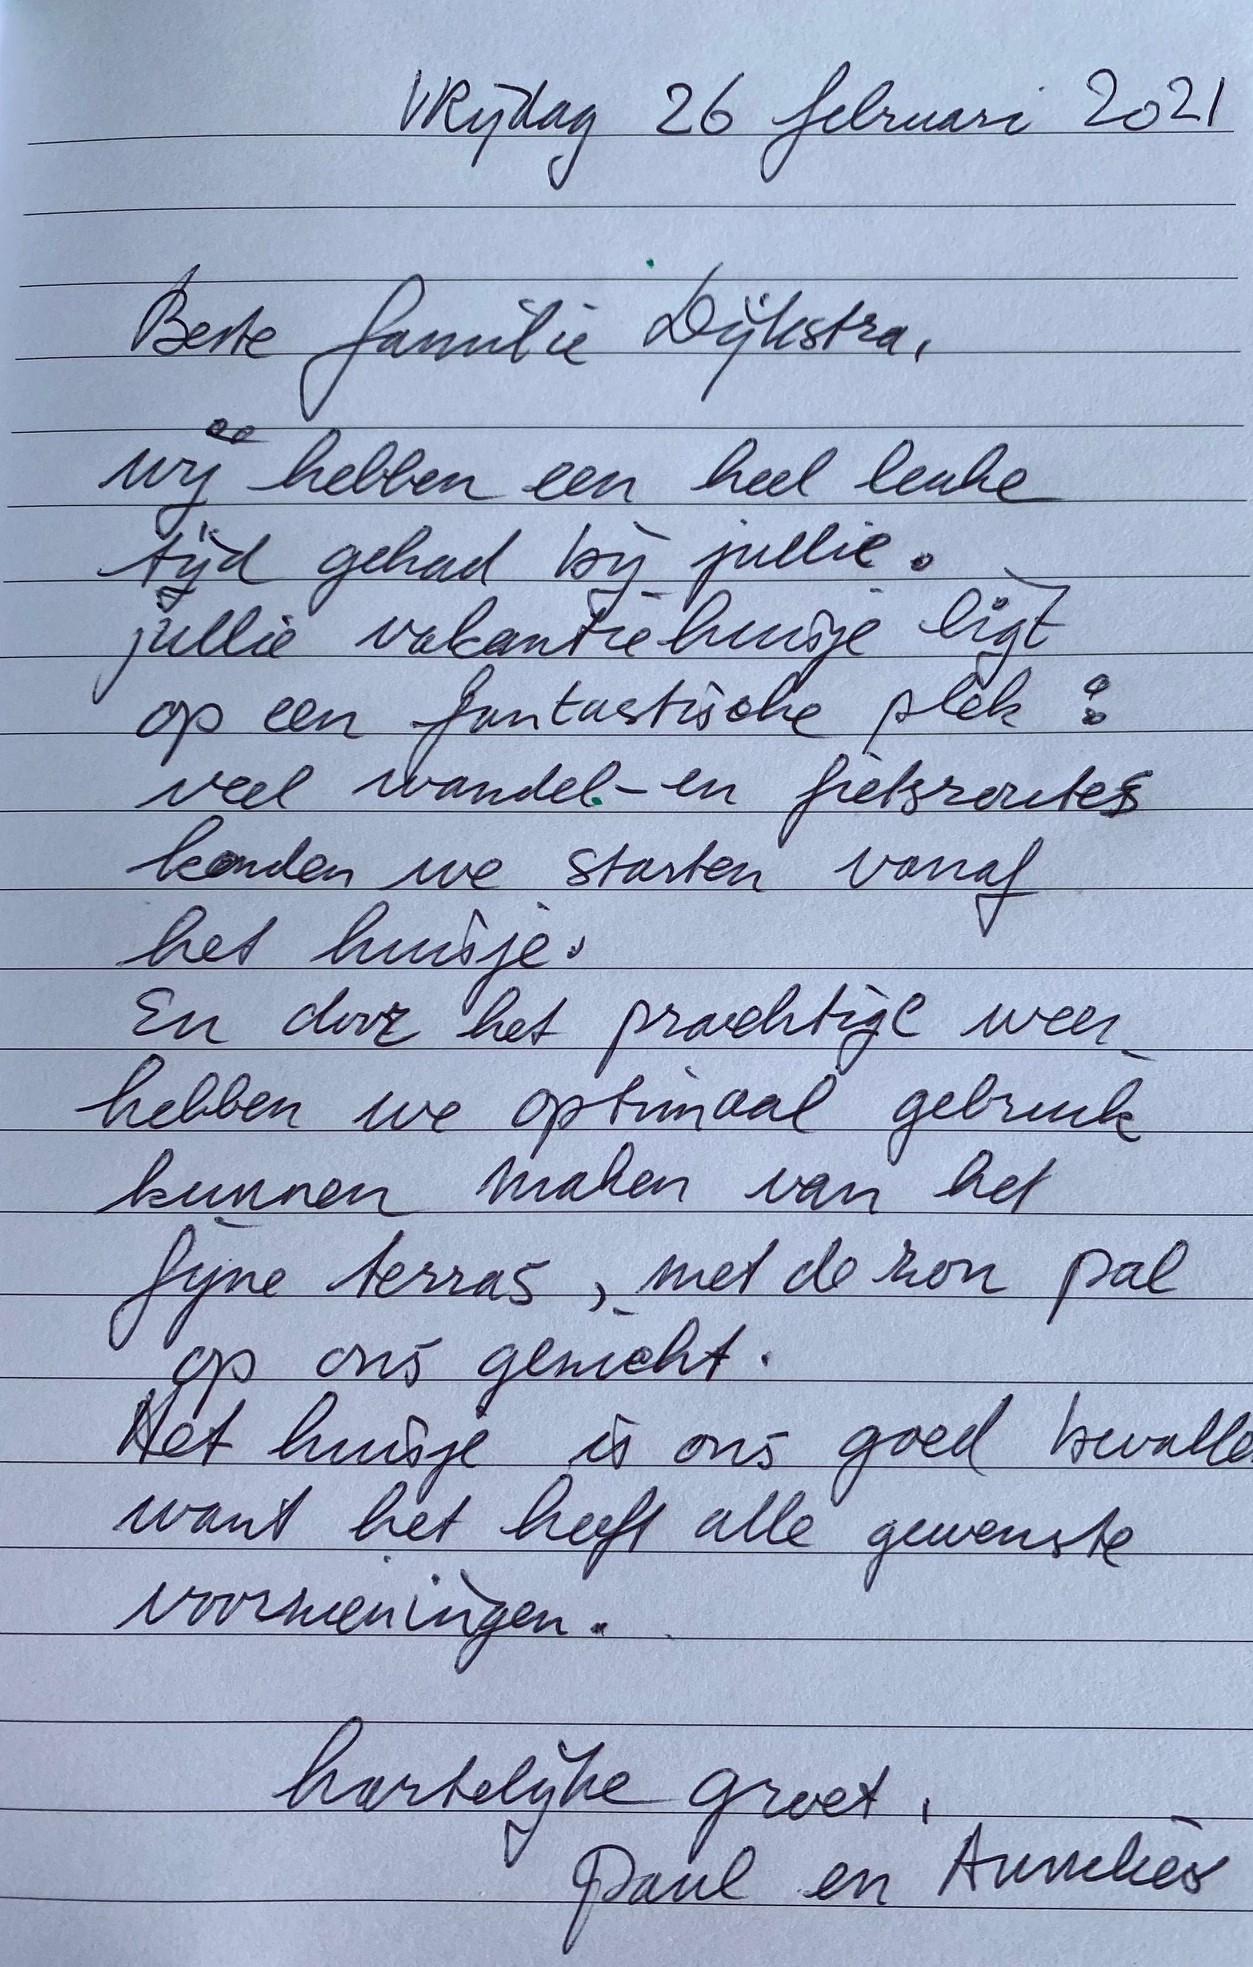 Vrijdag 26 februari 2021
Beste familie Dijkstra,
wij hebben een heel leuke
tijd gehad bij jullie.
jullie vakantiehuisje ligt
op een fantastische plek :
veel wandel- en fietsroutes
konden we starten vanaf
het huisje.
En door het prachtige weer
hebben we optimaal gebruik
kunnen maken van het
fijne terras, met de zon pal
op ons gericht.
Het huisje is ons goed bevalle
want het heeft alle gewenste
voorzieningen.
hartelijke groet,
Paul en Annelies